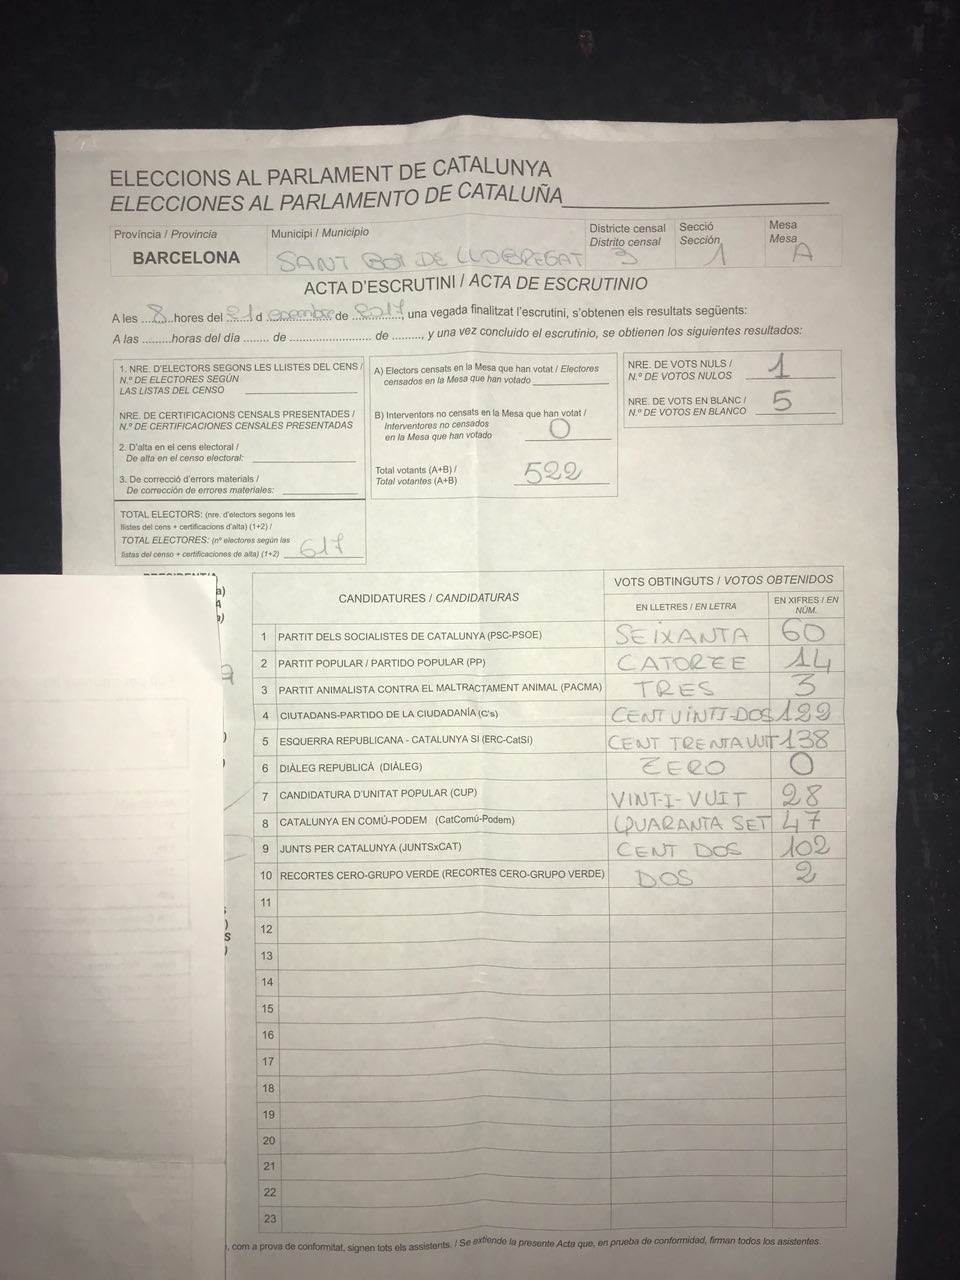 ELECCIONS AL PARLAMENT DE CATALUNYA
ELECCIONES AL PARLAMENTO DE CATALUÑA
Província / Provincia
BARCELONA
Municipi / Municipio
SANT BOI DE LLOBREGAT
Districte censal
Distrito censal
3
Secció
Sección
1
Mesa
Mesa
A
ACTA D'ESCRUTINI / ACTA DE ESCRUTINIO
A les 8 hores del 21 d de 2017, una vegada finalitzat l'escrutini, s'obtenen els resultats següents:
A las .........horas del día ........ de ......................... de ........., y una vez concluido el escrutinio, se obtienen los siguientes resultados:
1. NRE. D'ELECTORS SEGONS LES LLISTES DEL CENS /
N.º DE ELECTORES SEGÚN
LAS LISTAS DEL CENSO
NRE. DE CERTIFICACIONS CENSALS PRESENTADES /
N.º DE CERTIFICACIONES CENSALES PRESENTADAS
2. D'alta en el cens electoral /
De alta en el censo electoral:
3. De correcció d'errors materials /
De corrección de errores materiales:
TOTAL ELECTORS: (nre. d'electors segons les
llistes del cens + certificacions d'alta) (1+2) /
TOTAL ELECTORES: (nº electores según las
listas del censo + certificaciones de alta) (1+2) 617
A) Electors censats en la Mesa que han votat / Electores
censados en la Mesa que han votado
B) Interventors no censats en la Mesa que han votat /
Interventores no censados
en la Mesa que han votado 0
Total votants (A+B) /
Total votantes (A+B) 522
NRE. DE VOTS NULS /
N.º DE VOTOS NULOS 1
NRE. DE VOTS EN BLANC /
N.º DE VOTOS EN BLANCO 5
CANDIDATURES / CANDIDATURAS
VOTS OBTINGUTS / VOTOS OBTENIDOS
EN LLETRES / EN LETRA
EN XIFRES / EN
NÚM.
1 PARTIT DELS SOCIALISTES DE CATALUNYA (PSC-PSOE) SEIXANTA 60
2 PARTIT POPULAR / PARTIDO POPULAR (PP) CATORZE 14
3 PARTIT ANIMALISTA CONTRA EL MALTRACTAMENT ANIMAL (PACMA) TRES 3
4 CIUTADANS-PARTIDO DE LA CIUDADANÍA (C's) CENT VINTI-DOS 122
5 ESQUERRA REPUBLICANA - CATALUNYA SÍ (ERC-CatSí) CENT TRENTA VUIT 138
6 DIÀLEG REPUBLICÀ (DIÀLEG) ZERO 0
7 CANDIDATURA D'UNITAT POPULAR (CUP) VINT-I-VUIT 28
8 CATALUNYA EN COMÚ-PODEM (CatComú-Podem) QUARANTA SET 47
9 JUNTS PER CATALUNYA (JUNTSxCAT) CENT DOS 102
10 RECORTES CERO-GRUPO VERDE (RECORTES CERO-GRUPO VERDE) DOS 2
11
12
13
14
15
16
17
18
19
20
21
22
23
, com a prova de conformitat, signen tots els assistents. / Se extiende la presente Acta que, en prueba de conformidad, firman todos los asistentes.